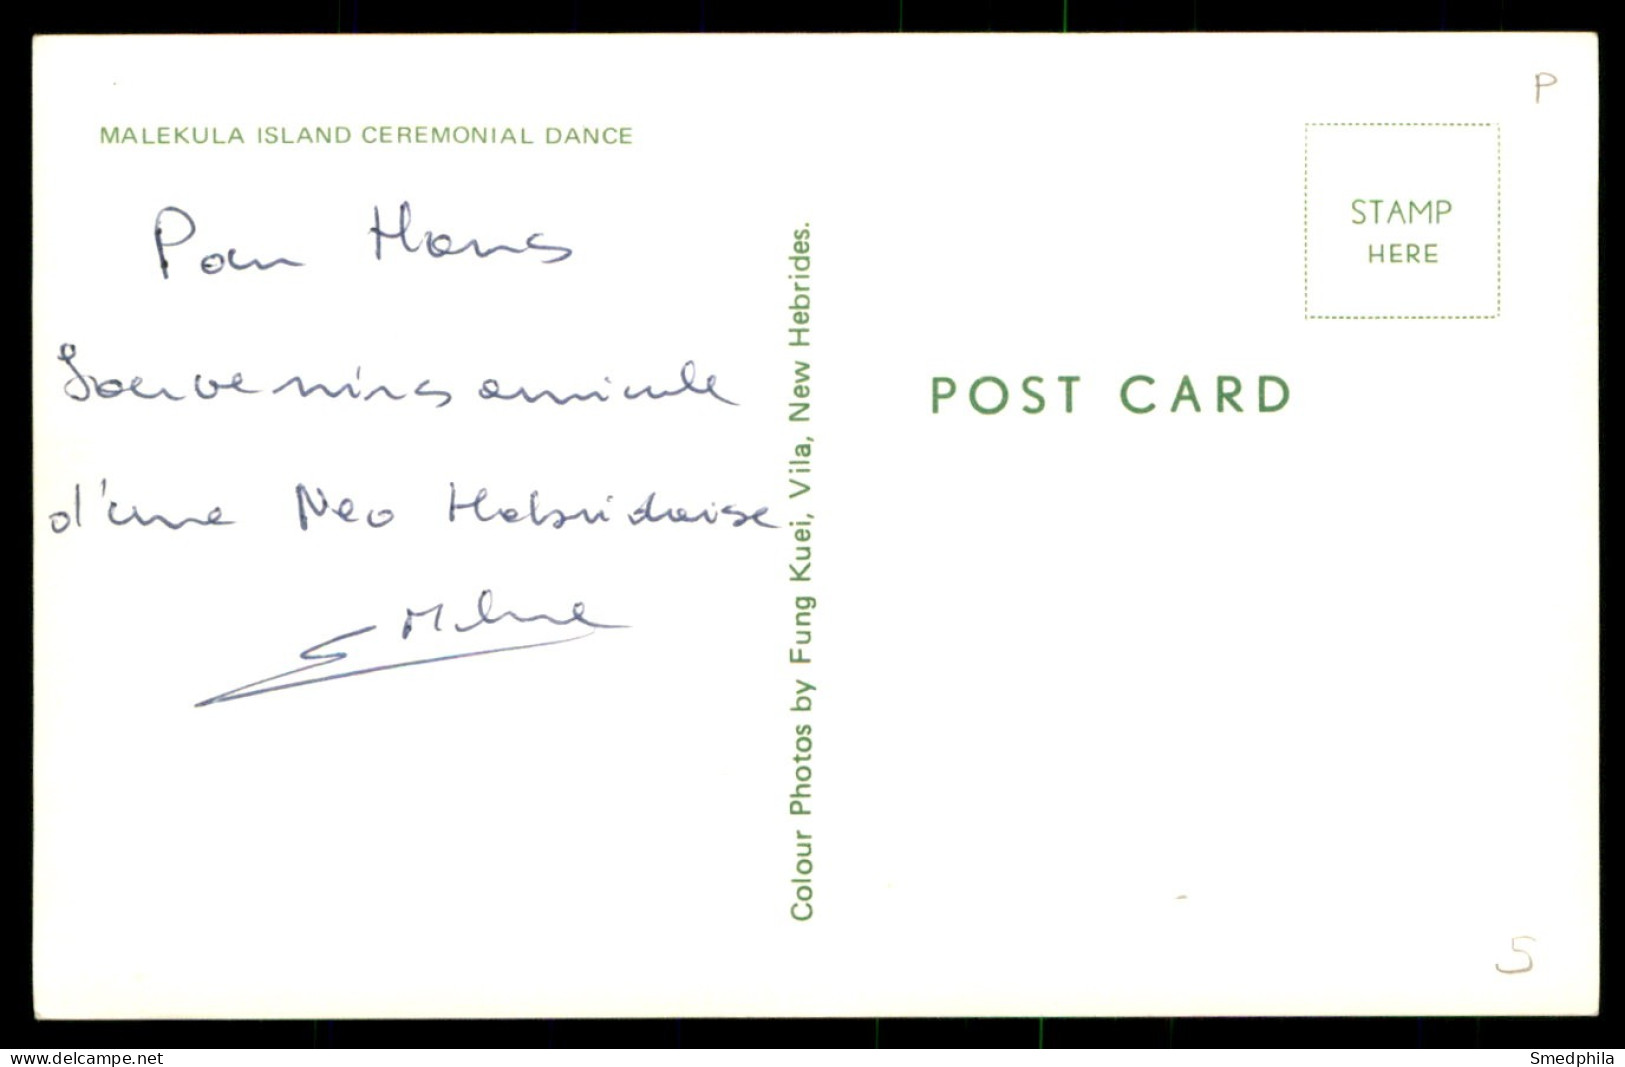 MALEKULA ISLAND CEREMONIAL DANCE
Pour Hans
Souvenirs amicale
d'une Neo Hebridaise
E Milne
Colour Photos by Fung Kuei, Vila, New Hebrides.
P
STAMP
HERE
POST CARD
5
delcampe.net
Smedphila